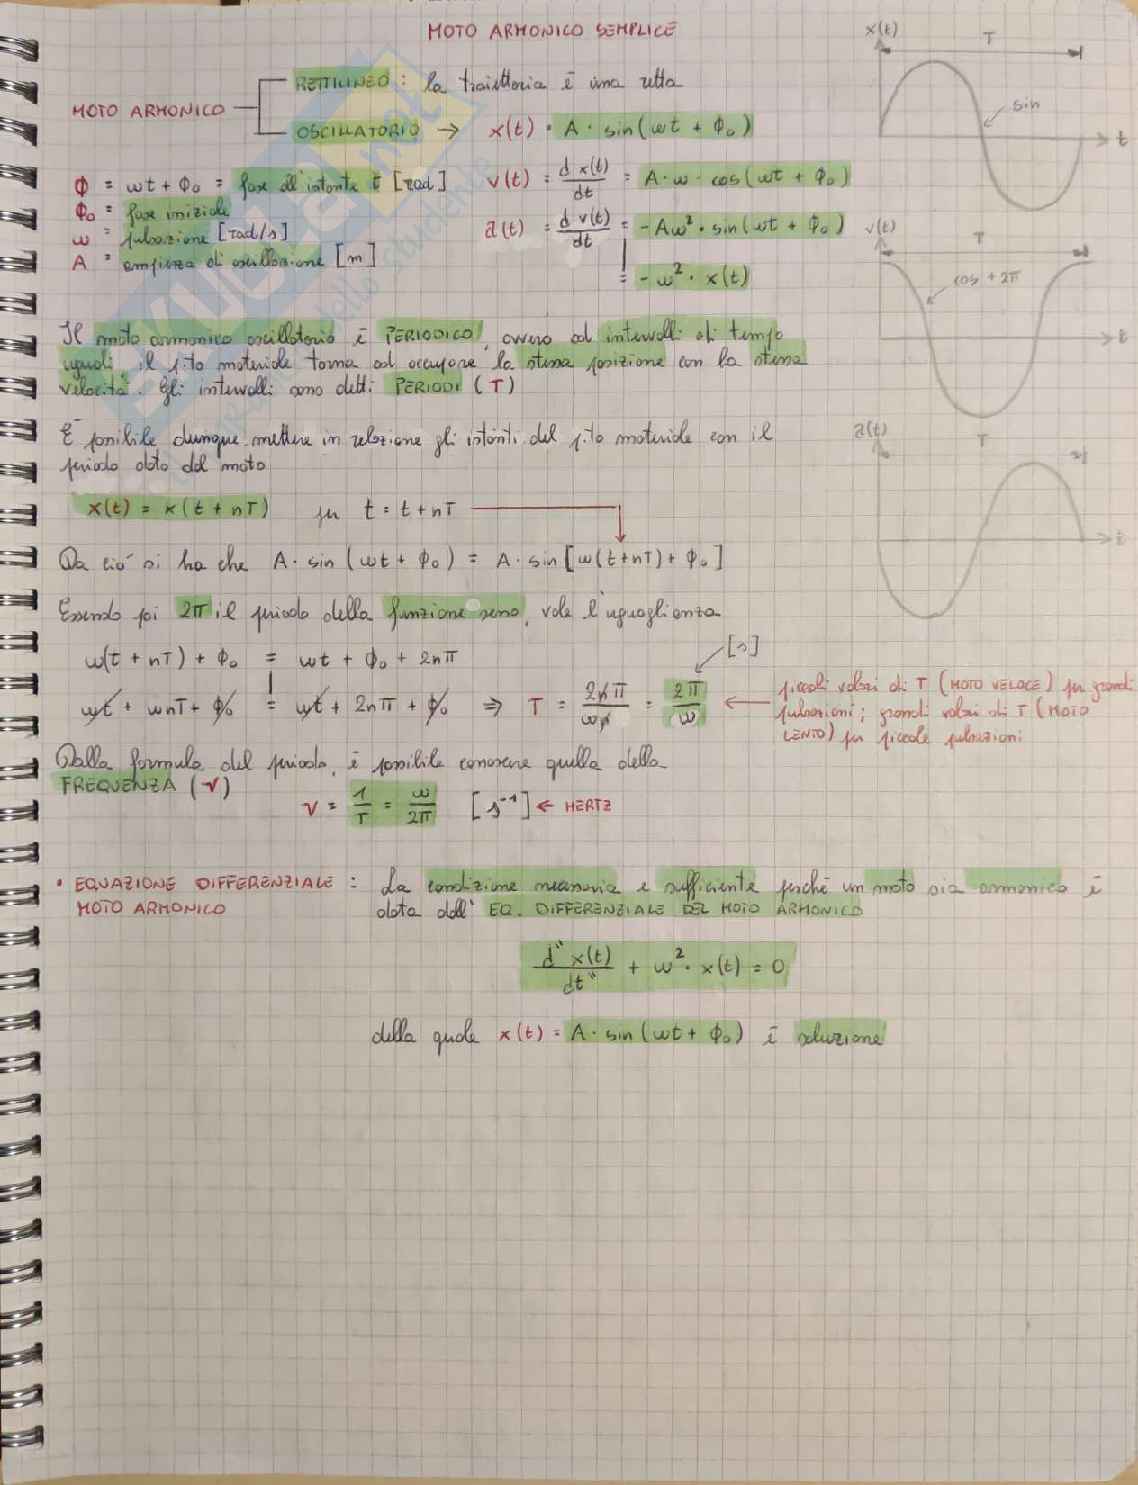 MOTO ARMONICO SEMPLICE
MOTO ARMONICO
RETTILINEO : la traiettoria è una retta
OSCILLATORIO → x(t) = A · sin(ωt + ϕ₀)
ϕ = ωt + ϕ₀ = fase all'istante t [rad]
ϕ₀ = fase iniziale
ω = pulsazione [rad/s]
A = ampiezza di oscillazione [m]
v(t) = d x(t)/dt = A · ω · cos(ωt + ϕ₀)
a(t) = d v(t)/dt = -Aω² · sin(ωt + ϕ₀)
= -ω² · x(t)
x(t)
T
sin
t
v(t)
T
cos + 2π
t
a(t)
T
t
Il moto armonico oscillatorio è PERIODICO, ovvero ad intervalli di tempo
uguali, il p.to materiale torna ad occupare la stessa posizione con la stessa
velocità. Gli intervalli sono detti PERIODI (T)
È possibile dunque mettere in relazione gli istanti del p.to materiale con il
periodo dato dal moto
x(t) = x(t + nT) per t = t + nT
Da ciò si ha che A · sin (ωt + ϕ₀) = A · sin [ω(t+nT) + ϕ₀]
Essendo poi 2π il periodo della funzione seno, vale l'uguaglianza
ω(t + nT) + ϕ₀ = ωt + ϕ₀ + 2nπ
ωt + ωnT + ϕ₀ = ωt + 2nπ + ϕ₀ ⇒ T = 2nπ/ωn = 2π/ω
[s]
piccoli valori di T (MOTO VELOCE) per grandi
pulsazioni; grandi valori di T (MOTO
LENTO) per piccole pulsazioni
Dalla formula del periodo, è possibile conoscere quella della
FREQUENZA (ν)
ν = 1/T = ω/2π [s⁻¹] ← HERTZ
• EQUAZIONE DIFFERENZIALE : La condizione necessaria e sufficiente perché un moto sia armonico è
MOTO ARMONICO data dall' EQ. DIFFERENZIALE DEL MOTO ARMONICO
d" x(t)/dt" + ω² · x(t) = 0
della quale x(t) = A · sin (ωt + ϕ₀) è soluzione